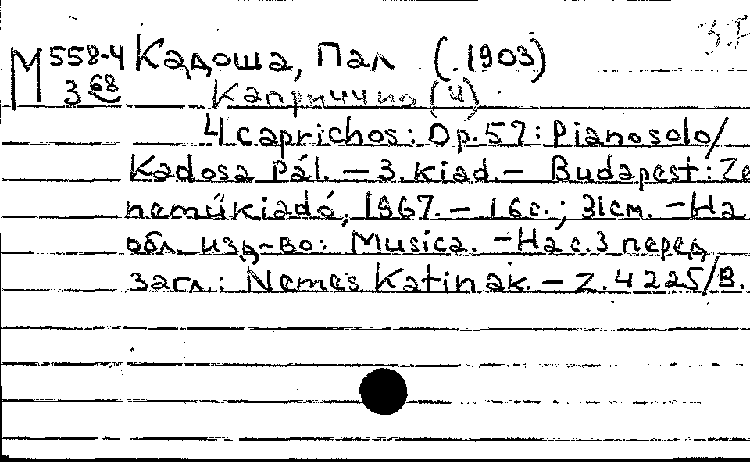 3.Р
М 558-4 Кадоша, Пал (.1903)
3 68 Каприччио (4)
4 caprichos: Op.57: Pianosolo/
Kadosa Pál. — 3. kiad. — Budapest: Ze
neműkiadó, 1967. — 16 с.; 31 см. — На
обл. изд-во: Musica. — На с. 3 перед
загл.: Nemes Katinak. — Z. 4225/B.